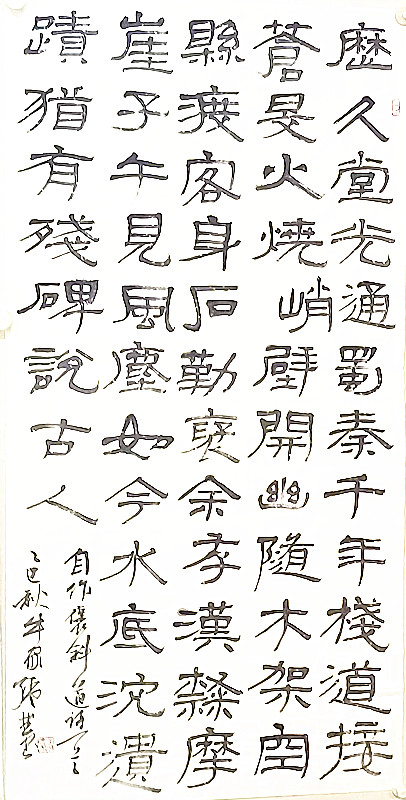 歷久堂光通蜀秦千年棧道接
蒼旻火燒峭壁開幽隧木架空
縣渡客身石勒褒余存漢隸摩
崖子午見風塵如今水底沈遺
蹟猶有殘碑說古人
自作褒斜道詩一首
乙巳秋